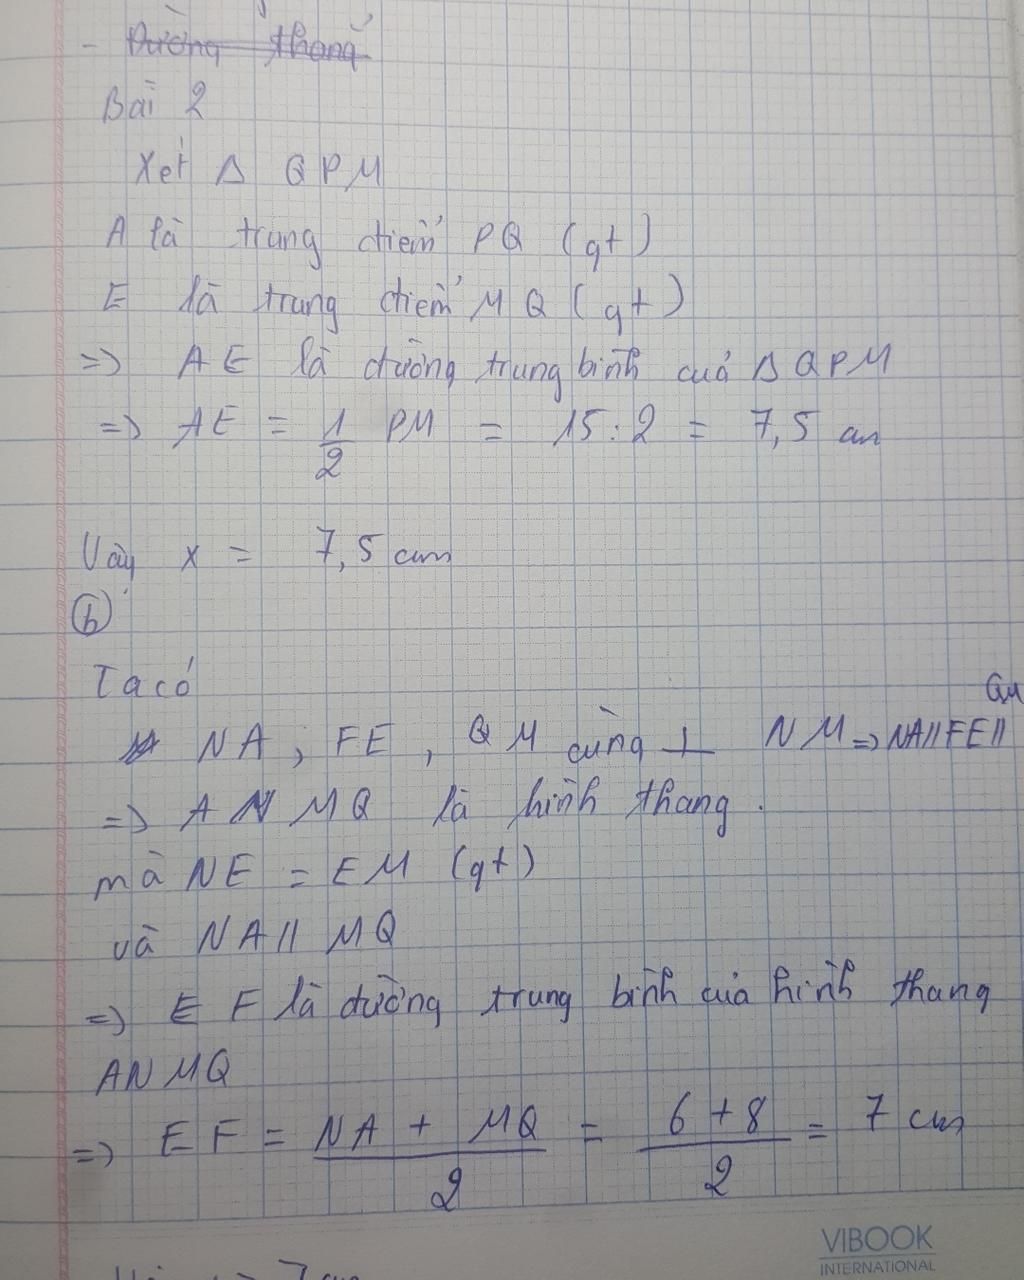 - Đường thẳng
Bài 2
Xét Δ QPM
A là trung điểm PQ (gt)
E là trung điểm MQ (gt)
=> AE là đường trung bình của Δ QPM
=> AE = 1/2 PM = 15 : 2 = 7,5 cm
Vậy x = 7,5 cm
b
Ta có
NA ; FE , QM cùng ⊥ NM => NA // FE // QM
=> ANMQ là hình thang .
mà NE = EM (gt)
và NA // MQ
=> EF là đường trung bình của hình thang
ANMQ
=> EF = (NA + MQ)/2 = (6 + 8)/2 = 7 cm
VIBOOK
INTERNATIONAL